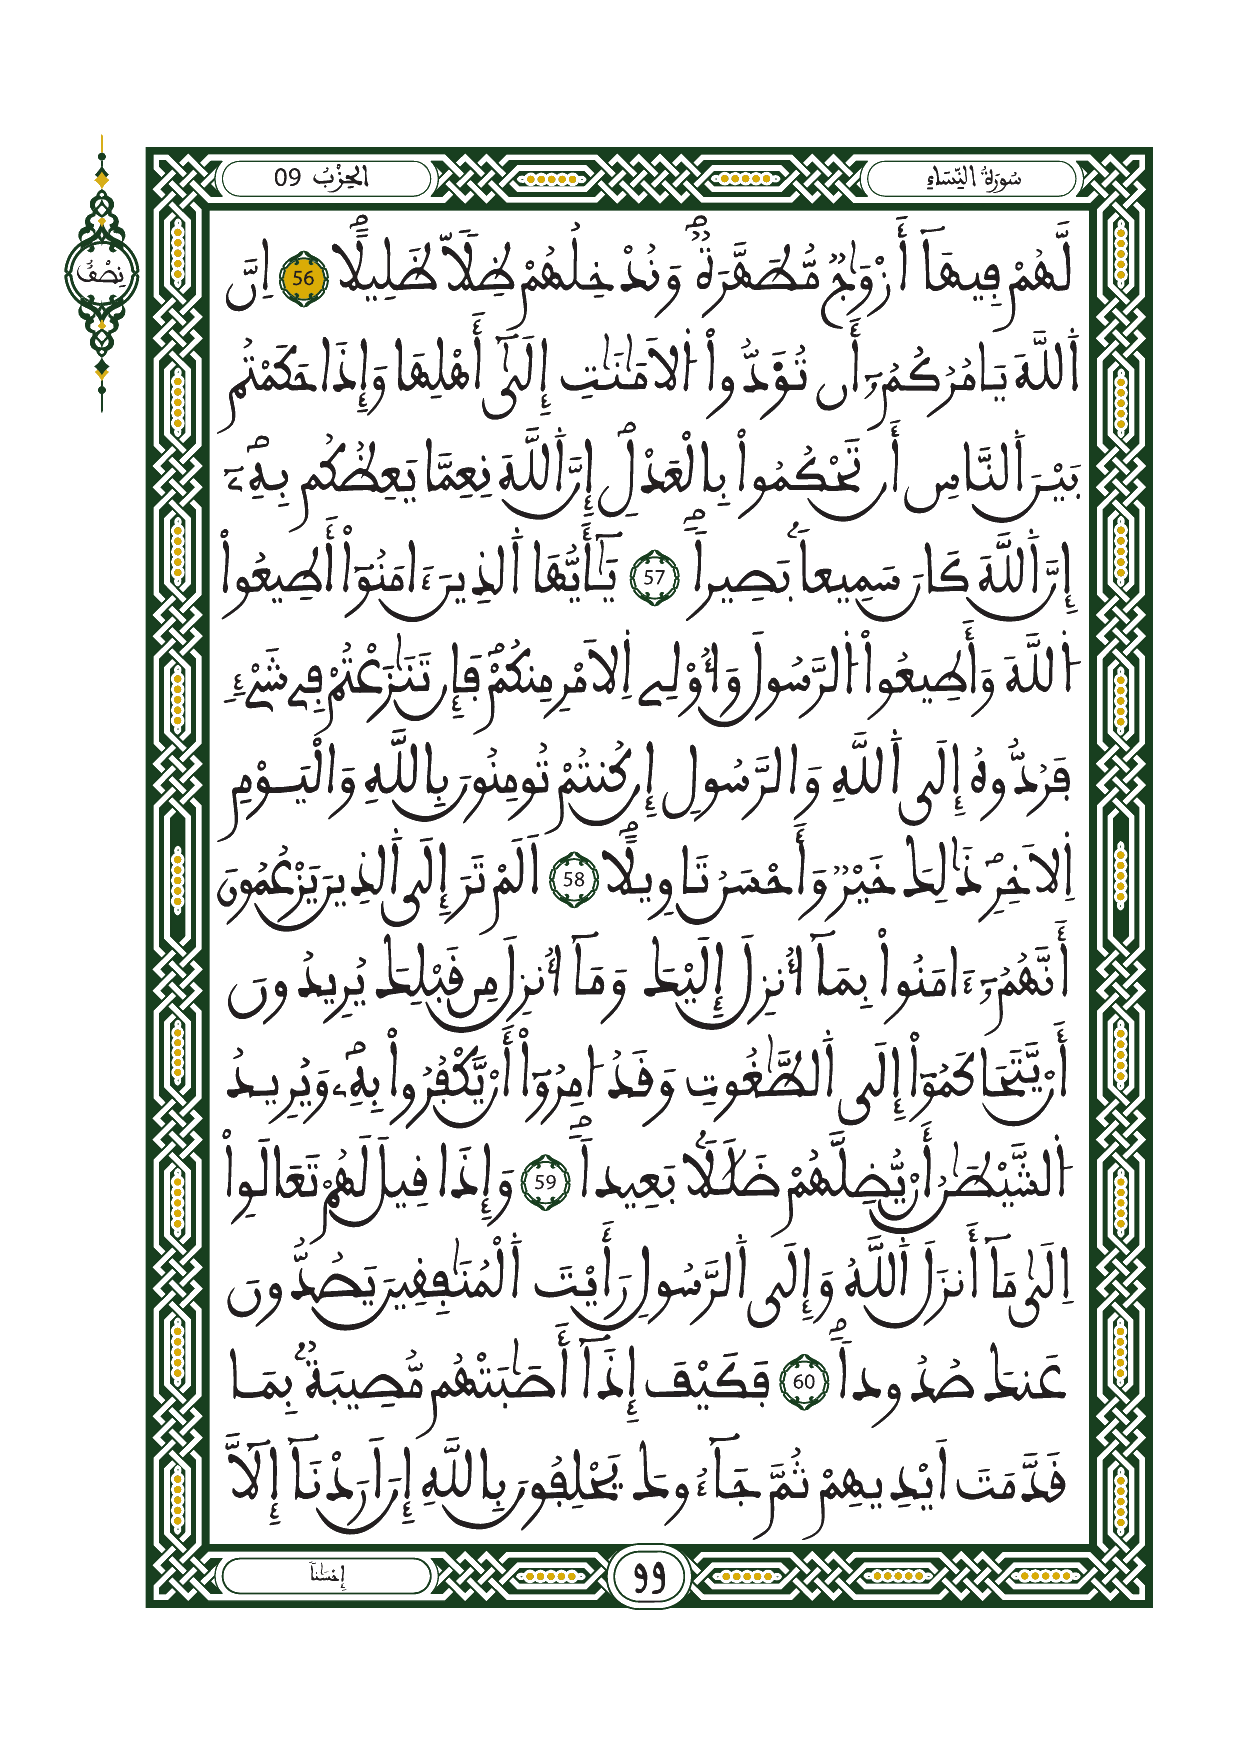 سُورَةُ النِّسَاءِ
الحِزْبُ 09
نِصْفُ
لَّهُمْ فِيهَآ أَزْوَٰجٞ مُّطَهَّرَةٞۖ وَنُدْخِلُهُمْ ظِلّاٗ ظَلِيلًاۖ 56 اِنَّ
اَ۬للَّهَ يَامُرُكُمُۥٓ أَن تُوَ۬دُّواْ اُ۬لَامَٰنَٰتِ إِلَىٰٓ أَهْلِهَا وَإِذَا حَكَمْتُم
بَيْنَ اَ۬لنَّاسِ أَن تَحْكُمُواْ بِالْعَدْلِۖ إِنَّ اَ۬للَّهَ نِعِمَّا يَعِظُكُم بِهِۦٓۖ
إِنَّ اَ۬للَّهَ كَانَ سَمِيعاَۢ بَصِيراٗۖ 57 يَٰٓأَيُّهَا اَ۬لذِينَ ءَامَنُوٓاْ أَطِيعُواْ
اُ۬للَّهَ وَأَطِيعُواْ اُ۬لرَّسُولَ وَأُوْلِے اِ۬لَامْرِ مِنكُمْۖ فَإِن تَنَٰزَعْتُمْ فِے شَےْءٖ
فَرُدُّوهُ إِلَى اَ۬للَّهِ وَالرَّسُولِ إِن كُنتُمْ تُومِنُونَ بِاللَّهِ وَالْيَوْمِ
اِ۬لَاخِرِۖ ذَٰلِكَ خَيْرٞ وَأَحْسَنُ تَاوِيلًاۖ 58 اَلَمْ تَرَ إِلَى اَ۬لذِينَ يَزْعُمُونَ
أَنَّهُمُۥٓ ءَامَنُواْ بِمَآ أُنزِلَ إِلَيْكَ وَمَآ أُنزِلَ مِن قَبْلِكَ يُرِيدُونَ
أَنْ يَّتَحَاكَمُوٓاْ إِلَى اَ۬لطَّٰغُوتِ وَقَدُ ا۟مِرُوٓاْ أَنْ يَّكْفُرُواْ بِهِۦۖ وَيُرِيدُ
اُ۬لشَّيْطَٰنُ أَنْ يُّضِلَّهُمْ ضَلَٰلَاۢ بَعِيداٗۖ 59 وَإِذَا قِيلَ لَهُمْ تَعَالَوِاْ
اِلَىٰ مَآ أَنزَلَ اَ۬للَّهُ وَإِلَى اَ۬لرَّسُولِ رَأَيْتَ اَ۬لْمُنَٰفِقِينَ يَصُدُّونَ
عَنكَ صُدُوداٗۖ 60 فَكَيْفَ إِذَآ أَصَٰبَتْهُم مُّصِيبَةُۢ بِمَا
قَدَّمَتَ اَيْدِيهِمْ ثُمَّ جَآءُوكَ يَحْلِفُونَ بِاللَّهِ إِنَ اَرَدْنَآ إِلَّآ
99
إِحْسَٰناٗ